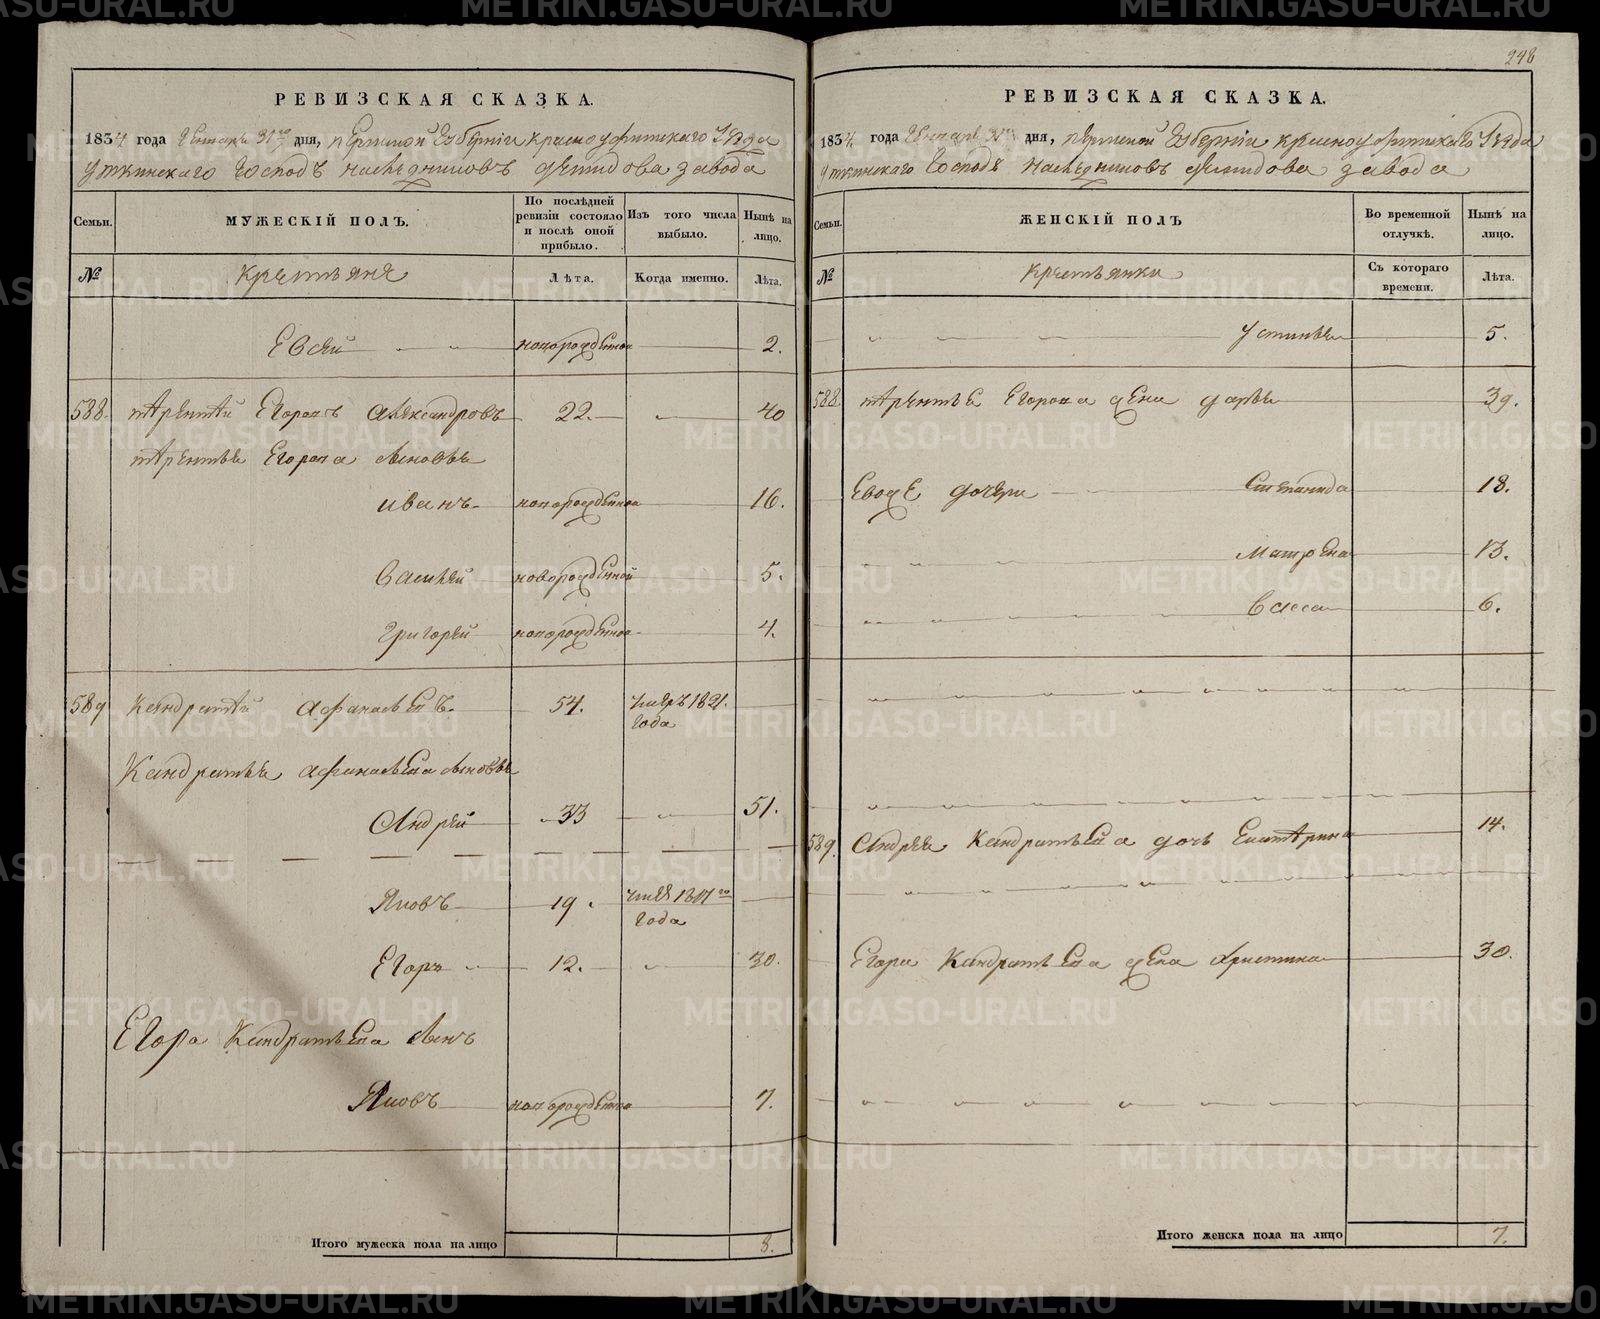 РЕВИЗСКАЯ СКАЗКА.
1834 года Генваря 31го дня, Пермской Губернiи Красноуфимскаго Уѣзда
Уткинскаго Господъ Наслѣдниковъ Демидова завода
Семьи.
МУЖЕСКIЙ ПОЛЪ.
По послѣдней ревизiи состояло и послѣ оной прибыло.
Изъ того числа выбыло.
Нынѣ на лицо.
№
Крестьяне
Лѣта.
Когда именно.
Лѣта.
Евсей новорожденной 2.
588. Терентей Егоровъ Александровъ 22. 40
Терентья Егорова сыновья
Иванъ новорожденной 16.
Василей новорожденной 5.
Григорей новорожденной 4.
589 Кандратей Афанасьевъ. 54. умеръ 1821.
года
Кандратья Афанасьева сыновья
Андрей 33 51.
Яковъ 19.
года
Егоръ 12. 30.
Егора Кандратьева сынъ
Яковъ новорожденной 7.
Итого мужеска пола на лицо 8.
248
РЕВИЗСКАЯ СКАЗКА.
1834 года Генваря 31го дня, Пермской Губернiи Красноуфимскаго Уѣзда
Уткинскаго Господъ Наслѣдниковъ Демидова завода
Семьи.
ЖЕНСКIЙ ПОЛЪ
Во временной отлучкѣ.
Нынѣ на лицо.
№
Крестьянки
Съ котораго времени.
Лѣта.
Устинья 5.
588. Терентья Егорова жена Дарья 39.
Евоже дочери Степанида 18.
Матрена 13.
Васса 6.
589. Андрея Кандратьева дочь Екатерина 14.
Егора Кандратьева жена Христина 30.
Итого женска пола на лицо 7.
METRIKI.GASO-URAL.RU